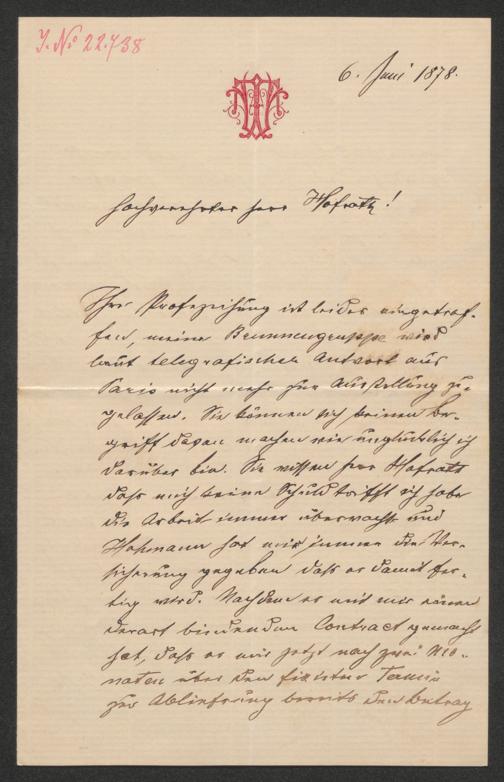 J. No 22.738
6. Juni 1878.
Hochverehrter Herr Hofrath!
Ihre Profezeihung ist leider eingetrof-
fen, meine Brunnengruppe wird
laut telegrafischer Antwort aus
Paris nicht mehr zur Ausstellung zu-
gelassen. Sie können sich keinen Be-
griff davon machen wie unglücklich ich
darüber bin. Sie wissen Herr Hofrath
daß mich keine Schuld trifft ich habe
die Arbeit immer überwacht und
Hohmann hat mir immer die Ver-
sicherung gegeben daß er damit fer-
tig wird. Nachdem er mit mir einen
derart bindenden Contract gemacht
hat, daß er mir jetzt nach zwei Mo-
naten über den fixirten Termin
zur Ablieferung bereits den Betrag